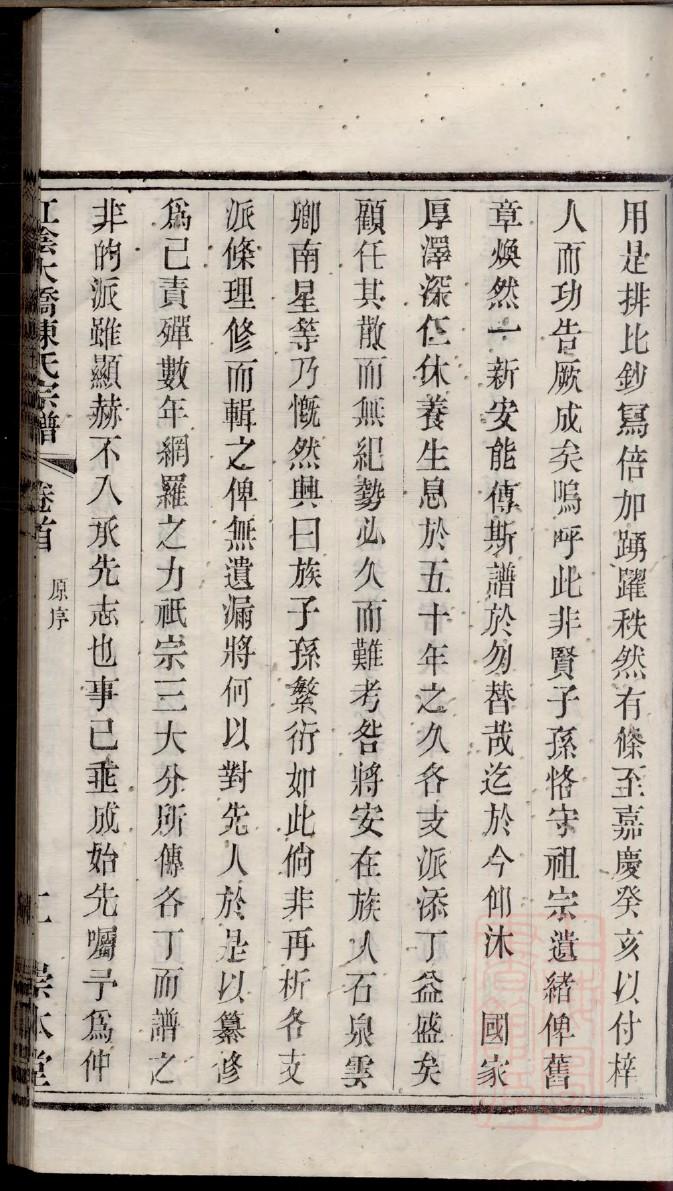 用是排比鈔寫倍加踴躍秩然有條至嘉慶癸亥以付梓
人而功告厥成矣嗚呼此非賢子孫恪守祖宗遺緒俾舊
章煥然一新安能傳斯譜於勿替哉迄於今仰沐　國家
厚澤深仁休養生息於五十年之久各支派添丁益盛矣
顧任其散而無紀勢必久而難考咎將安在族人石泉雲
卿南星等乃慨然興曰族子孫繁衍如此倘非再析各支
派條理修而輯之俾無遺漏將何以對先人於是以纂修
爲己責殫數年網羅之力祇宗三大分所傳各丁而譜之
非的派雖顯赫不入承先志也事已垂成始先囑予爲仲
江陰大橋陳氏宗譜 卷首 原序 二 崇本堂